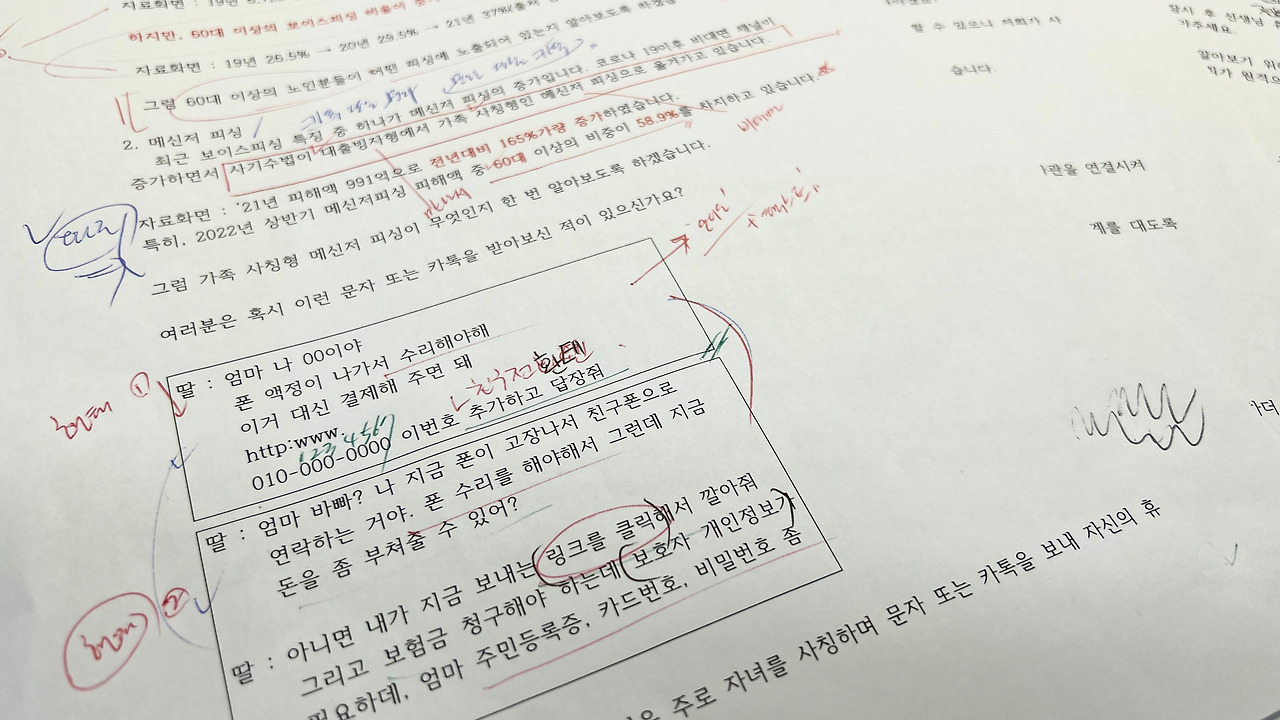 하지만, 60대 이상의 보이스피싱 비율이
자료화면 : 19년 26.5% → 20년 29.5% → 21년 37%(출처
그럼 60대 이상의 노인분들이 어떤 피싱에 노출되어 있는지 알아보도록 하겠습
2. 메신저 피싱
최근 보이스피싱 특징 중 하나가 메신저 피싱의 증가입니다. 코로나 19이후 비대면 채널이
증가하면서 사기수법이 대출빙자형에서 가족 사칭형인 메신저 피싱으로 옮겨가고 있습니다.
자료화면 : '21년 피해액 991억으로 전년대비 165%가량 증가하였습니다.
특히, 2022년 상반기 메신저피싱 피해액 중 60대 이상의 비중이 58.9%를 차지하고 있습니다.
그럼 가족 사칭형 메신저 피싱이 무엇인지 한 번 알아보도록 하겠습니다.
여러분은 혹시 이런 문자 또는 카톡을 받아보신 적이 있으신가요?
①
딸 : 엄마 나 00이야
폰 액정이 나가서 수리해야해
이거 대신 결제해 주면 돼
http:www.
123 4567
010-000-0000 이번호 추가하고 답장줘
②
딸 : 엄마 바빠? 나 지금 폰이 고장나서 친구폰으로
연락하는 거야. 폰 수리를 해야해서 그런데 지금
돈을 좀 부쳐줄 수 있어?
딸 : 아니면 내가 지금 보내는 링크를 클릭해서 깔아줘
그리고 보험금 청구해야 하는데 보호자 개인정보가
필요하데, 엄마 주민등록증, 카드번호, 비밀번호 좀
은 주로 자녀를 사칭하며 문자 또는 카톡을 보내 자신의 휴
할 수 있으나 여회가 사
습니다.
관을 연결시켜
계를 대도록
잠시 후 선생님
가주세요.
알아보기 위